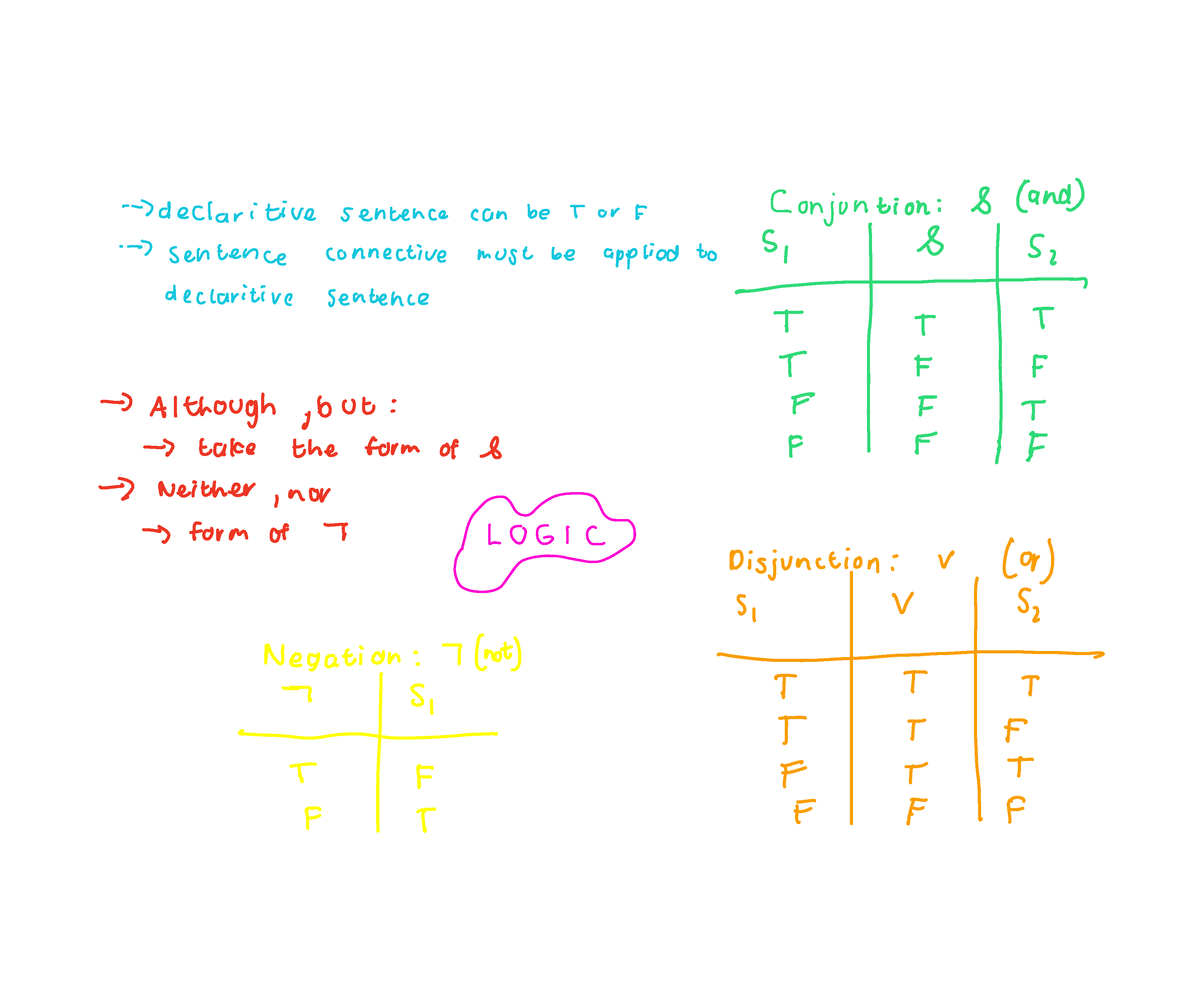 ⇢ declaritive sentence can be T or F
⇢ sentence connective must be applied to
declaritive sentence
→ Although , but :
→ take the form of &
→ Neither , nor
→ form of ¬
LOGIC
Negation : ¬ (not)
¬ S₁
T F
F T
Conjuntion : & (and)
S₁ & S₂
T T T
T F F
F F T
F F F
Disjunction : v (or)
S₁ V S₂
T T T
T T F
F T T
F F F